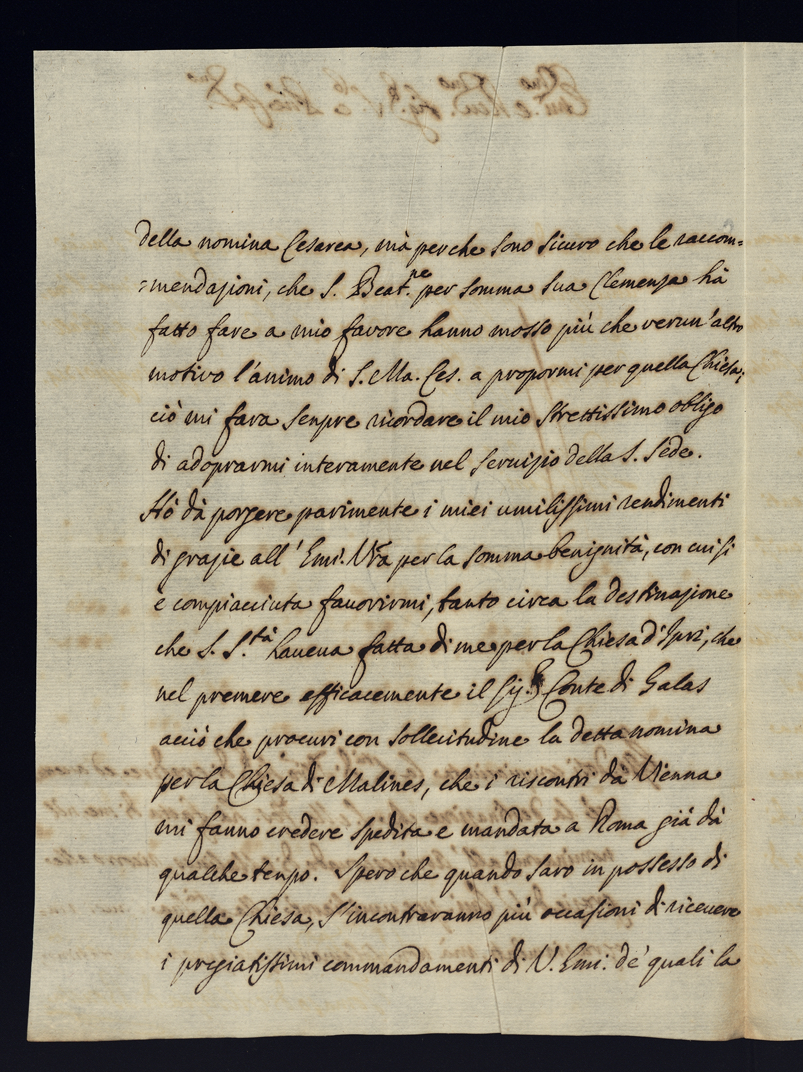 della nomina Cesarea, mà perche sono sicuro che le raccom=
=mendazioni, che S. Beat.ne per somma sua Clemenza hà
fatto fare a mio favore hanno mosso più che verun'altro
motivo l'animo di S. Ma. Ces. a propormi per quella Chiesa;
ciò mi fara senpre ricordare il mio strettissimo obligo
di adoprarmi interamente nel servizio della S. Sede.
Hò dà porgere parimente i miei umilissimi rendimenti
di grazie all'Emi. Vra per la somma benignità, con cui si
è compiacciuta favorirmi, tanto circa la destinazione
che S. S.tà haveva fatta di me per la Chiesa d'Ipri, che
nel premere efficacemente il Sig.r Conte di Galas
acciò che procuri con sollecitudine la detta nomina
per la Chiesa di Malines, che i riscontri dà Vienna
mi fanno credere spedita e mandata a Roma già dà
qualche tenpo. Spero che quando sarò in possesso di
quella Chiesa, s'incontraranno più occasioni di ricevere
i pregiatissimi commandamenti di V. Emi. de' quali la